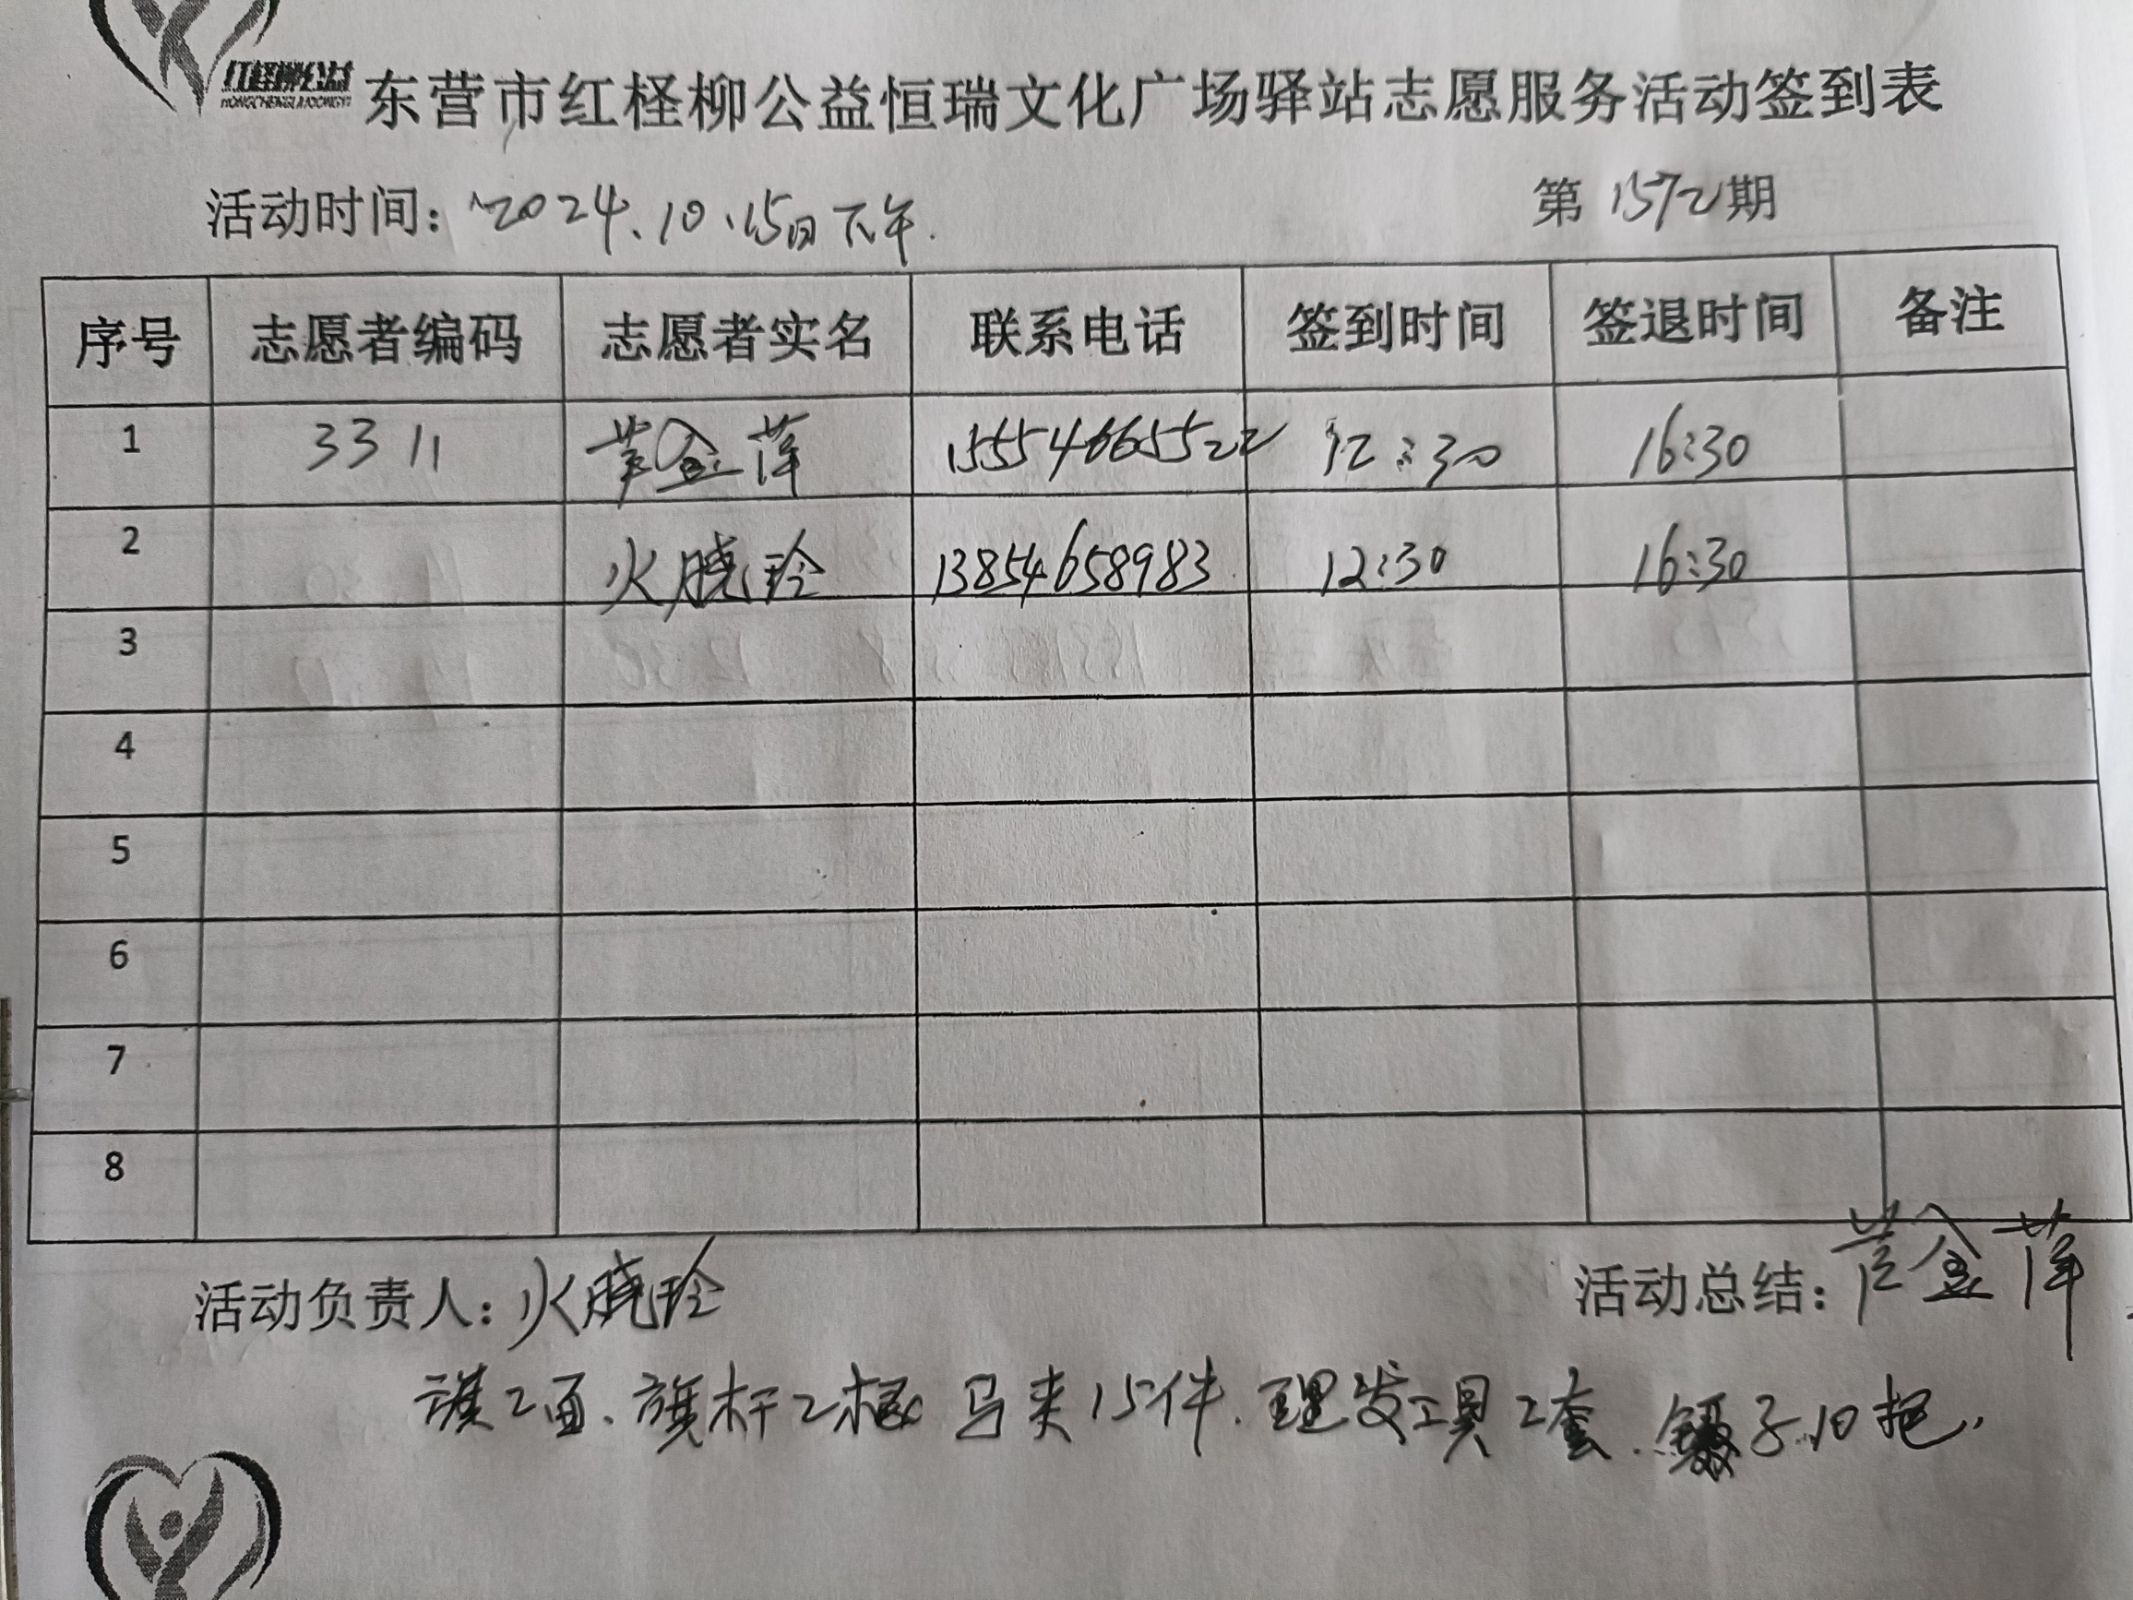 红柽柳公益
HONGCHENGLIUGONGYI
东营市红柽柳公益恒瑞文化广场驿站志愿服务活动签到表
活动时间：2024.10.15日下午. 第1572期
序号 志愿者编码 志愿者实名 联系电话 签到时间 签退时间 备注
1 3311 黄金萍 15554666522 12:30 16:30
2 火晓玲 13854658983 12:30 16:30
3
4
5
6
7
8
活动负责人：火晓玲 活动总结：黄金萍
旗2面、旗杆2根 马夹15件.理发工具2套.镊子10把.